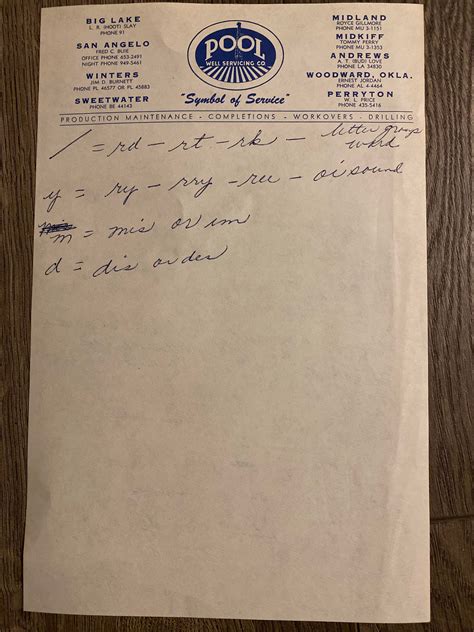 BIG LAKE
L. R. (HOOT) SLAY
PHONE 91
SAN ANGELO
FRED C. BUIE
OFFICE PHONE 653-2491
NIGHT PHONE 949-5461
WINTERS
JIM D. BURNETT
PHONE PL 46577 OR PL 45883
SWEETWATER
PHONE BE 44143
POOL
WELL SERVICING CO.
"Symbol of Service"
MIDLAND
ROYCE GILLMORE
PHONE MU 3-1151
MIDKIFF
TOMMY PERRY
PHONE MU 3-1353
ANDREWS
A. T. (BUD) LOVE
PHONE LA 34830
WOODWARD, OKLA.
ERNEST JORDAN
PHONE AL 4-4464
PERRYTON
W. L. PRICE
PHONE 435-5416
PRODUCTION MAINTENANCE - COMPLETIONS - WORKOVERS - DRILLING
/ = rd - rt - rk - letter group
word
y = ry - rry - - oi sound
m = mis or im
d = dis or des